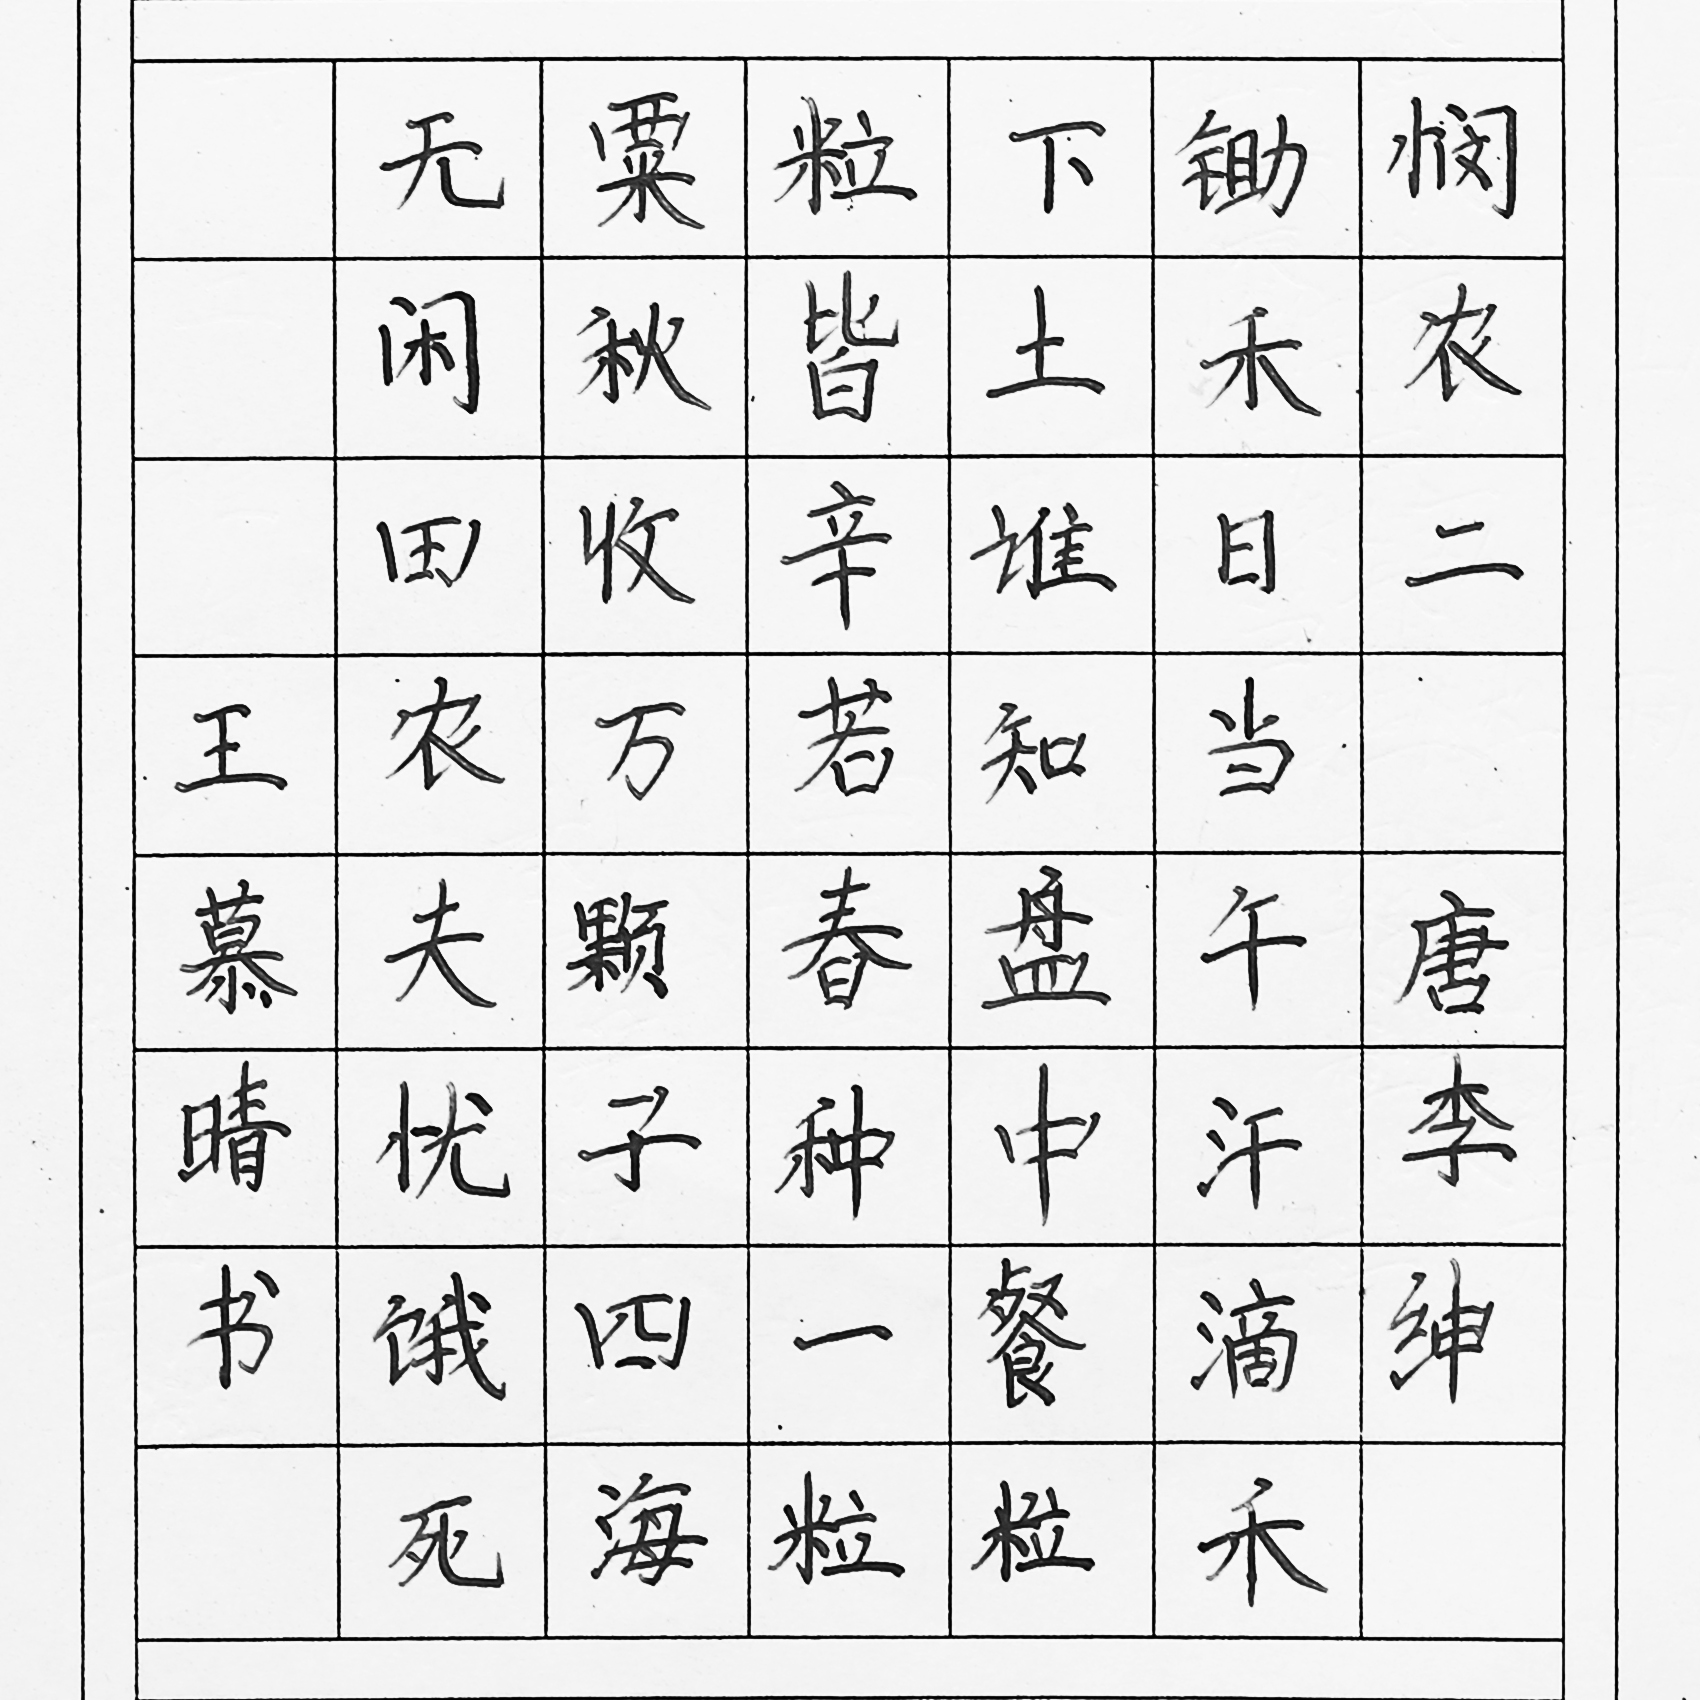 悯农二 唐李绅
锄禾日当午汗滴禾
下土谁知盘中餐粒
粒皆辛若春种一粒
粟秋收万颗子四海
无闲田农夫忧饿死
王慕晴书